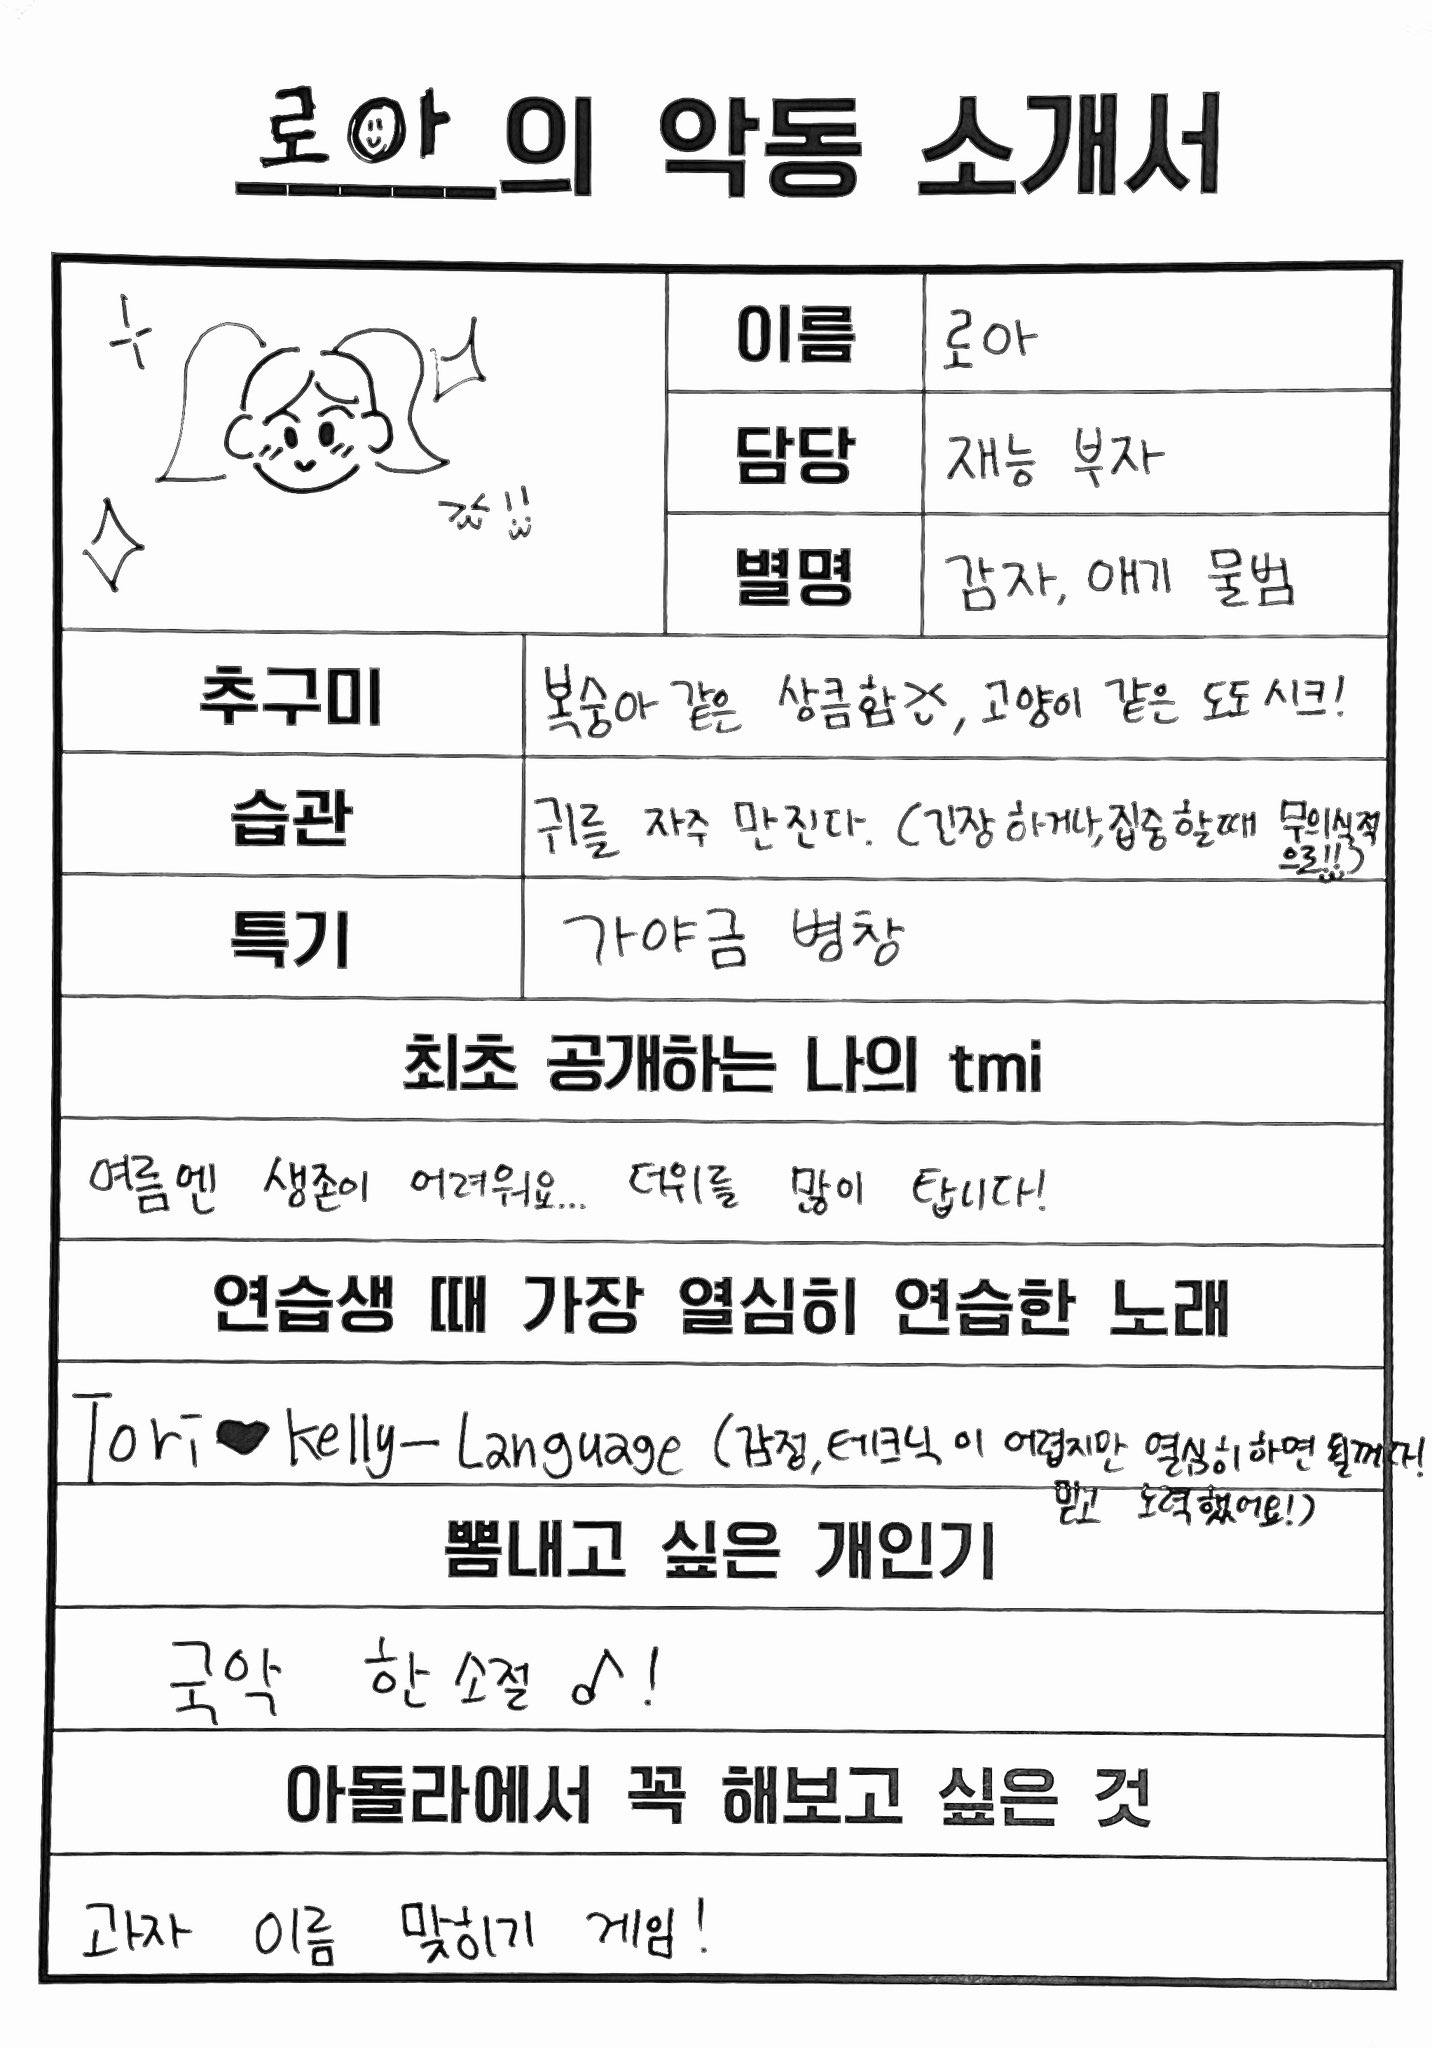 로아의 악동 소개서
이름 로아
담당 재능 부자
별명 감자, 애기 물범
추구미 복숭아 같은 상큼함, 고양이 같은 도도 시크!
습관 귀를 자주 만진다. (긴장하거나, 집중할때 무의식적
으로!!)
특기 가야금 병창
최초 공개하는 나의 tmi
여름엔 생존이 어려워요... 더위를 많이 탑니다!
연습생 때 가장 열심히 연습한 노래
Tori♥Kelly-Language (감정, 테크닉이 어렵지만 열심히하면 될꺼다!
믿고 노력했어요!)
뽐내고 싶은 개인기
국악 한소절♪!
아돌라에서 꼭 해보고 싶은 것
과자 이름 맞히기 게임!